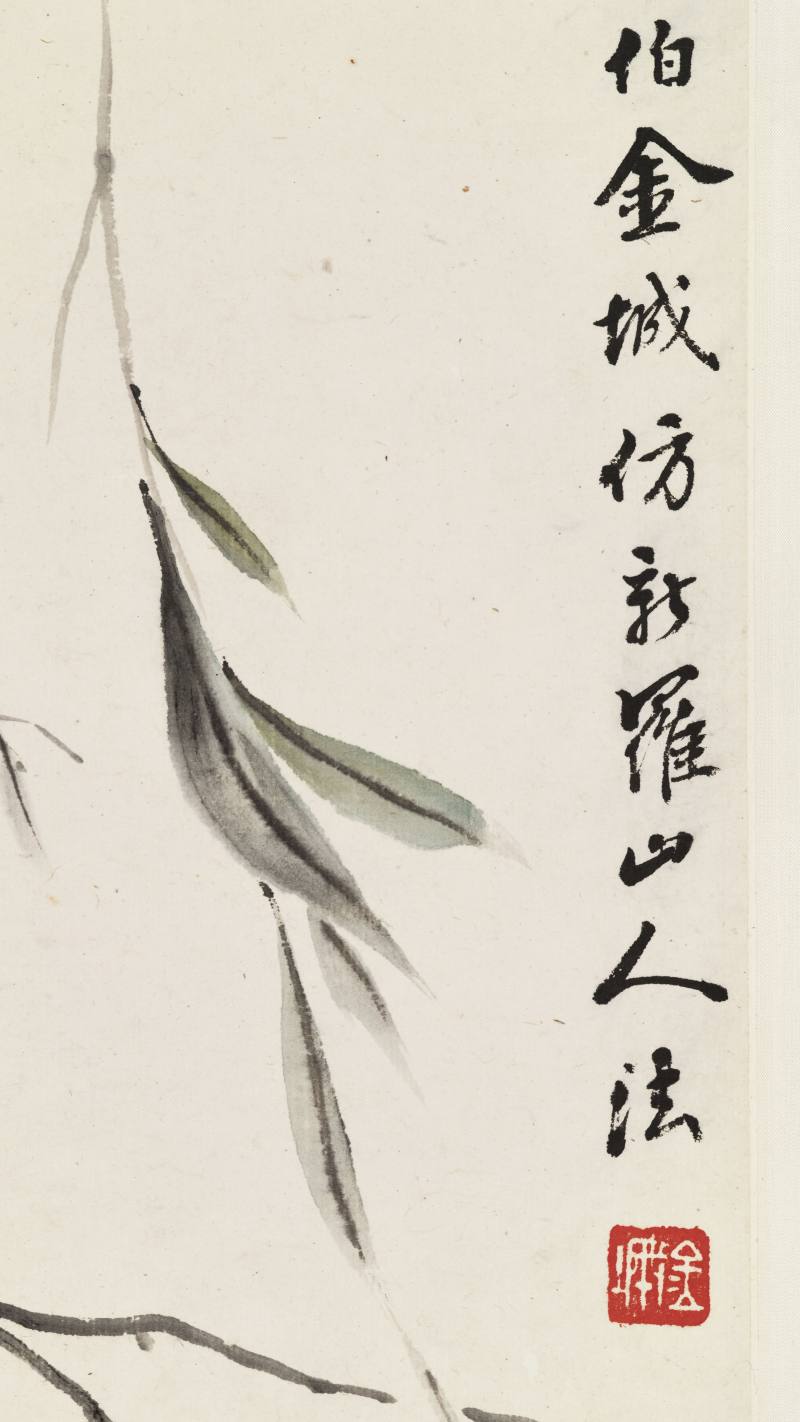 伯金城仿新羅山人法
金城